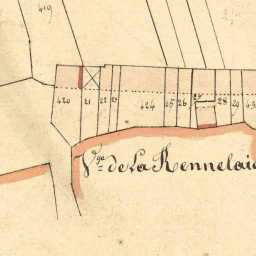 419
420 21 22 23 424 25 26 27 28 29
V.ge de La Rennelai